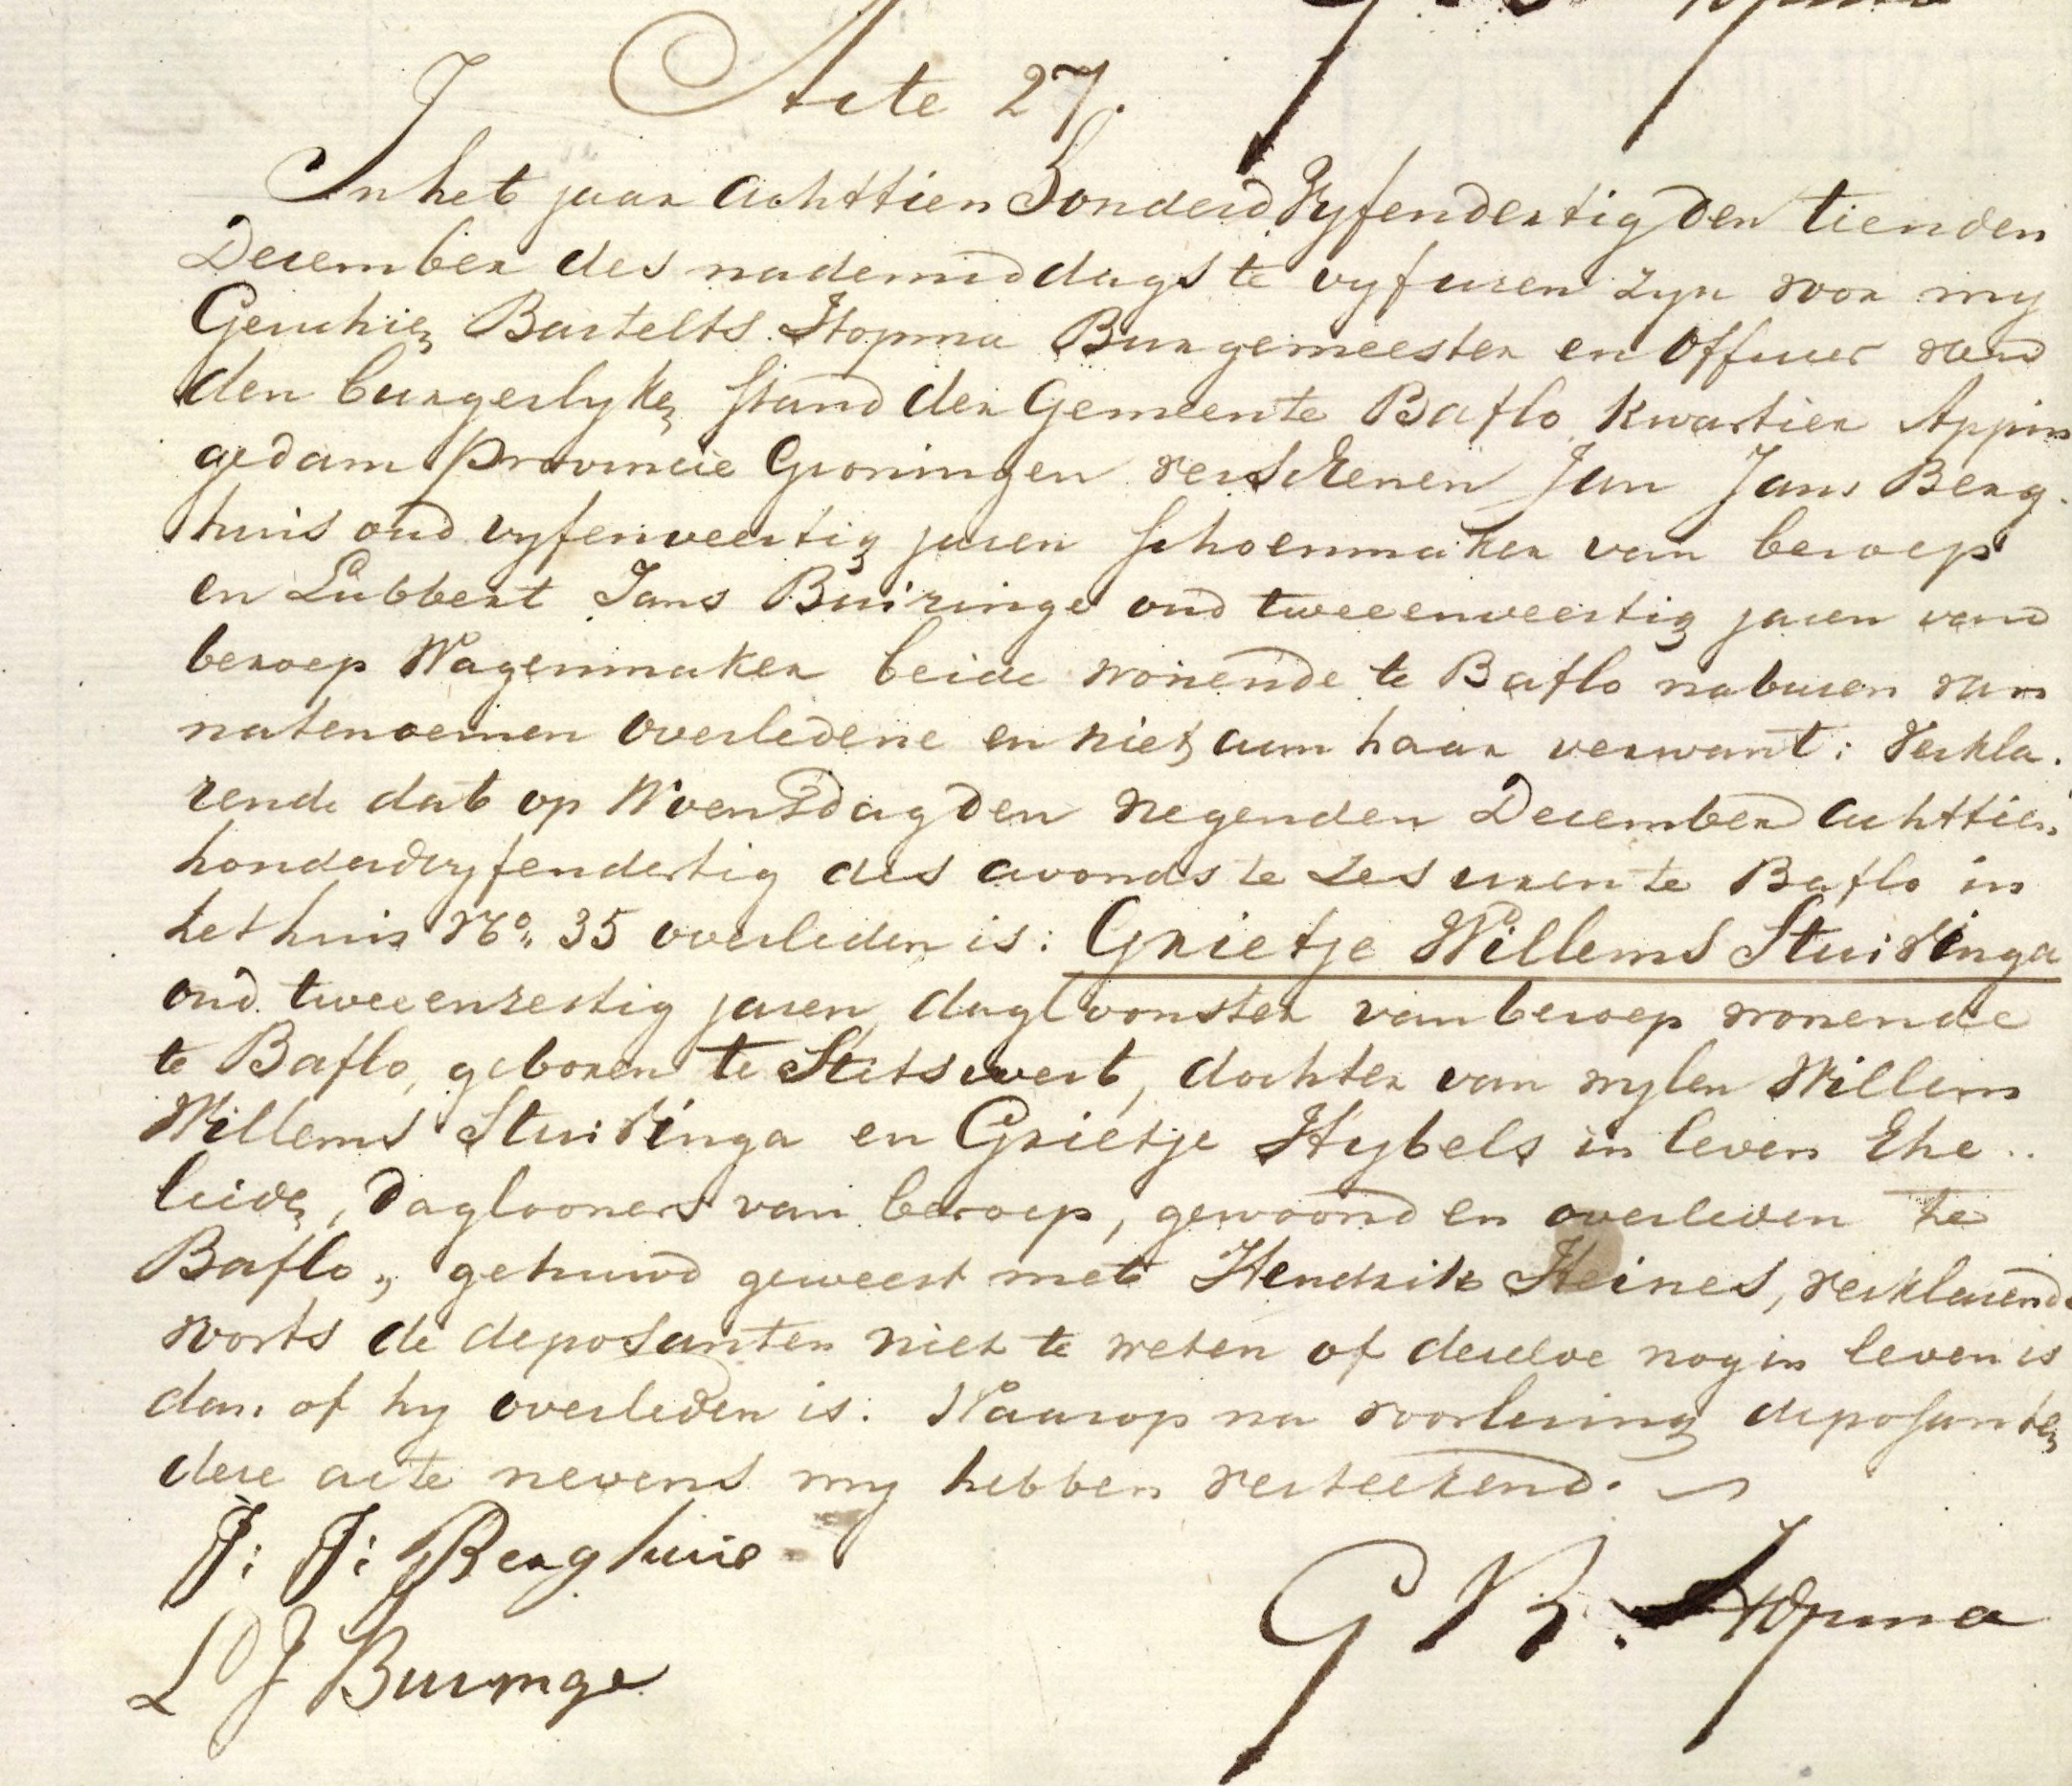 Acte 27.
In het jaar achttien honderd vyfendertig den tienden
December des nademiddags te vyf uren zyn voor my
Geuchien Bartelts Hopma Burgemeester en Officier van
den burgerlyken stand der Gemeente Baflo kwartier Appin
gedam Provincie Groningen verschenen Jan Jans Berg
huis oud vyfenveertig jaren schoenmaker van beroep
en Lubbert Jans Buiringe oud tweeenveertig jaren van
beroep Wagenmaker beide wonende te Baflo naburen van
natenoemen overledene en niet aan haar verwant: Verkla.
rende dat op Woensdag den negenden December achttien
honderdvyfendertig des avonds te zes uren te Baflo in
het huis No. 35 overleden is: Grietje Willems Stuivinga
oud tweeenzestig jaren, dagloonster van beroep wonende
te Baflo, geboren te Stitswert, dochter van wylen Willem
Willems Stuivinga en Grietje Hybels in leven Ehe..
leiden, Daglooners van beroep, gewoond en overleden te
Baflo,, gehuwd geweest met Hendrik Heines, verklarende
voorts de deposanten niet te weten of dezelve nog in leven is
dan of hy overleden is. Waarop na voorlezing deposanten
deze acte nevens my hebben verteekend.
J: J: Berghuis
L J Buiringe
G B. Hopma